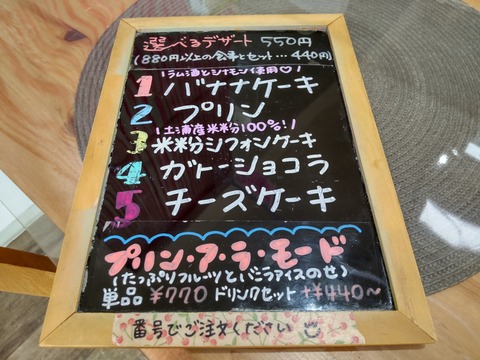 選べるデザート 550円
(880円以上の食事とセット…440円)
ラム酒とシナモン使用♡
1 バナナケーキ
2 プリン
土浦産米粉100%!
3 米粉シフォンケーキ
4 ガトーショコラ
5 チーズケーキ
プリン・ア・ラ・モード
(たっぷりフルーツとバニラアイスのせ)
単品 ¥770 ドリンクセット +¥440〜
番号でご注文ください